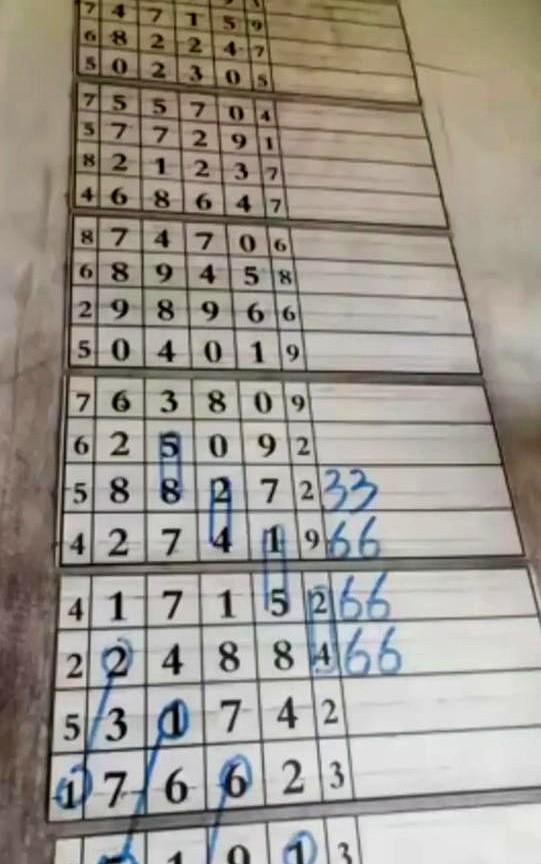 7 4 7 1 5 9
6 8 2 2 4 7
5 0 2 3 0 5
7 5 5 7 0 4
5 7 7 2 9 1
8 2 1 2 3 7
4 6 8 6 4 7
8 7 4 7 0 6
6 8 9 4 5 8
2 9 8 9 6 6
5 0 4 0 1 9
7 6 3 8 0 9
6 2 5 0 9 2
5 8 8 2 7 2 33
4 2 7 4 1 9 66
4 1 7 1 5 2 66
2 2 4 8 8 4 66
5 3 1 7 4 2
1 7 6 6 2 3
1 9 1 3